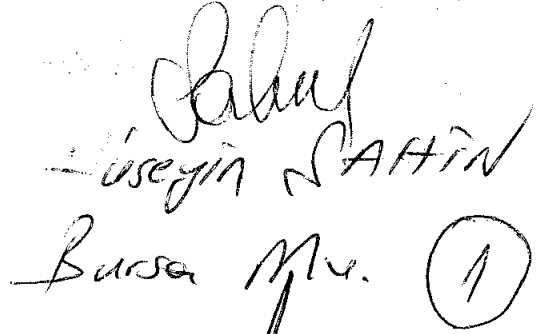 Hüseyin ŞAHİN
Bursa Mv. 1